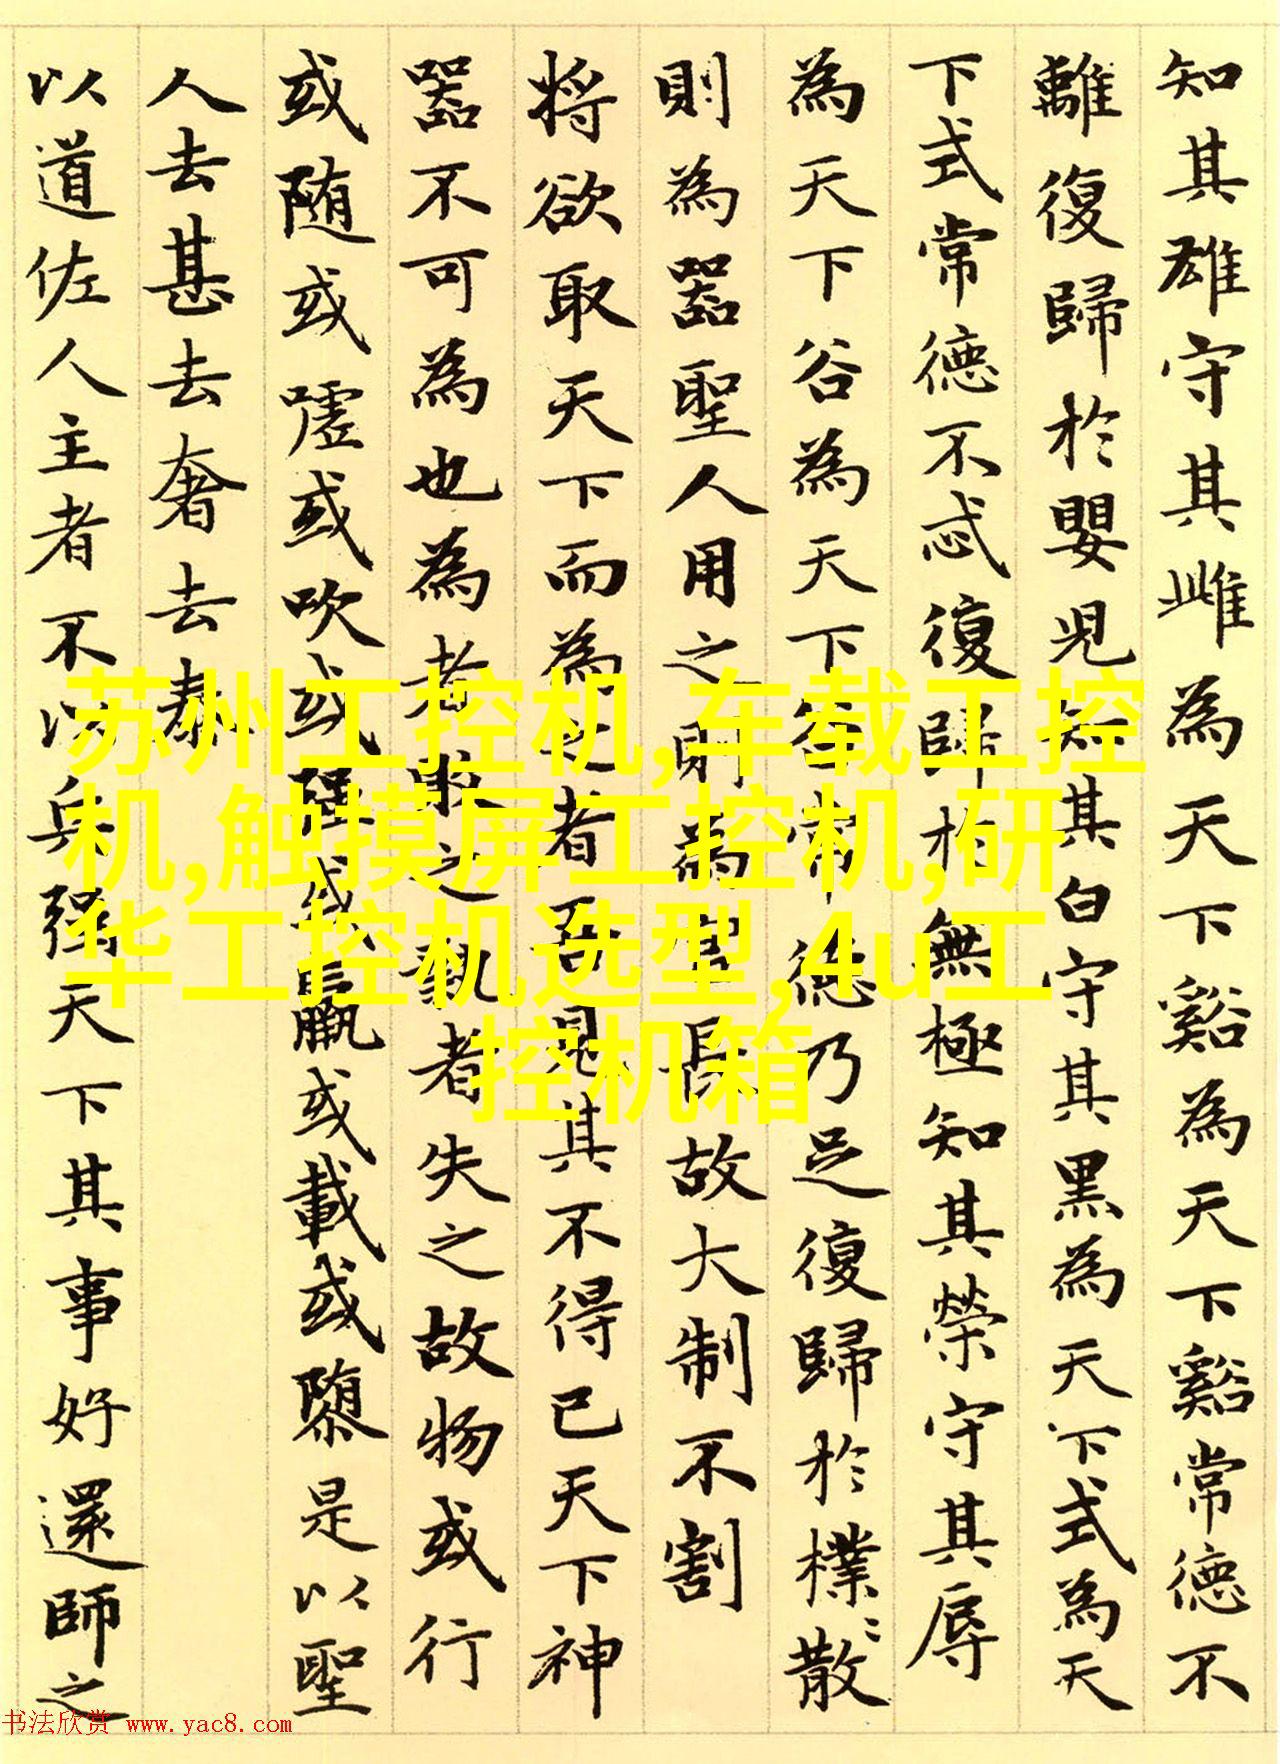 知其雄守其雌為天下谿為天下谿常德不
離復歸於嬰兒知其白守其黑為天下式為天
下式常德不忒復歸於無極知其榮守其辱
為天下谷為天下谷常德乃足復歸於樸樸散
則為器聖人用之則為官長故大制不割
將欲取天下而為之者吾見其不得已天下神
器不可為也為者敗之執者失之故物或行
或随或噓或吹或強或羸或載或隳是以聖
人去甚去奢去泰
以道佐人主者不以兵强天下其事好還師之
苏州工控机,车载工控
机,触摸屏工控机,研
华工控机选型,4u工
控机箱
书法欣赏 www.yac8.com